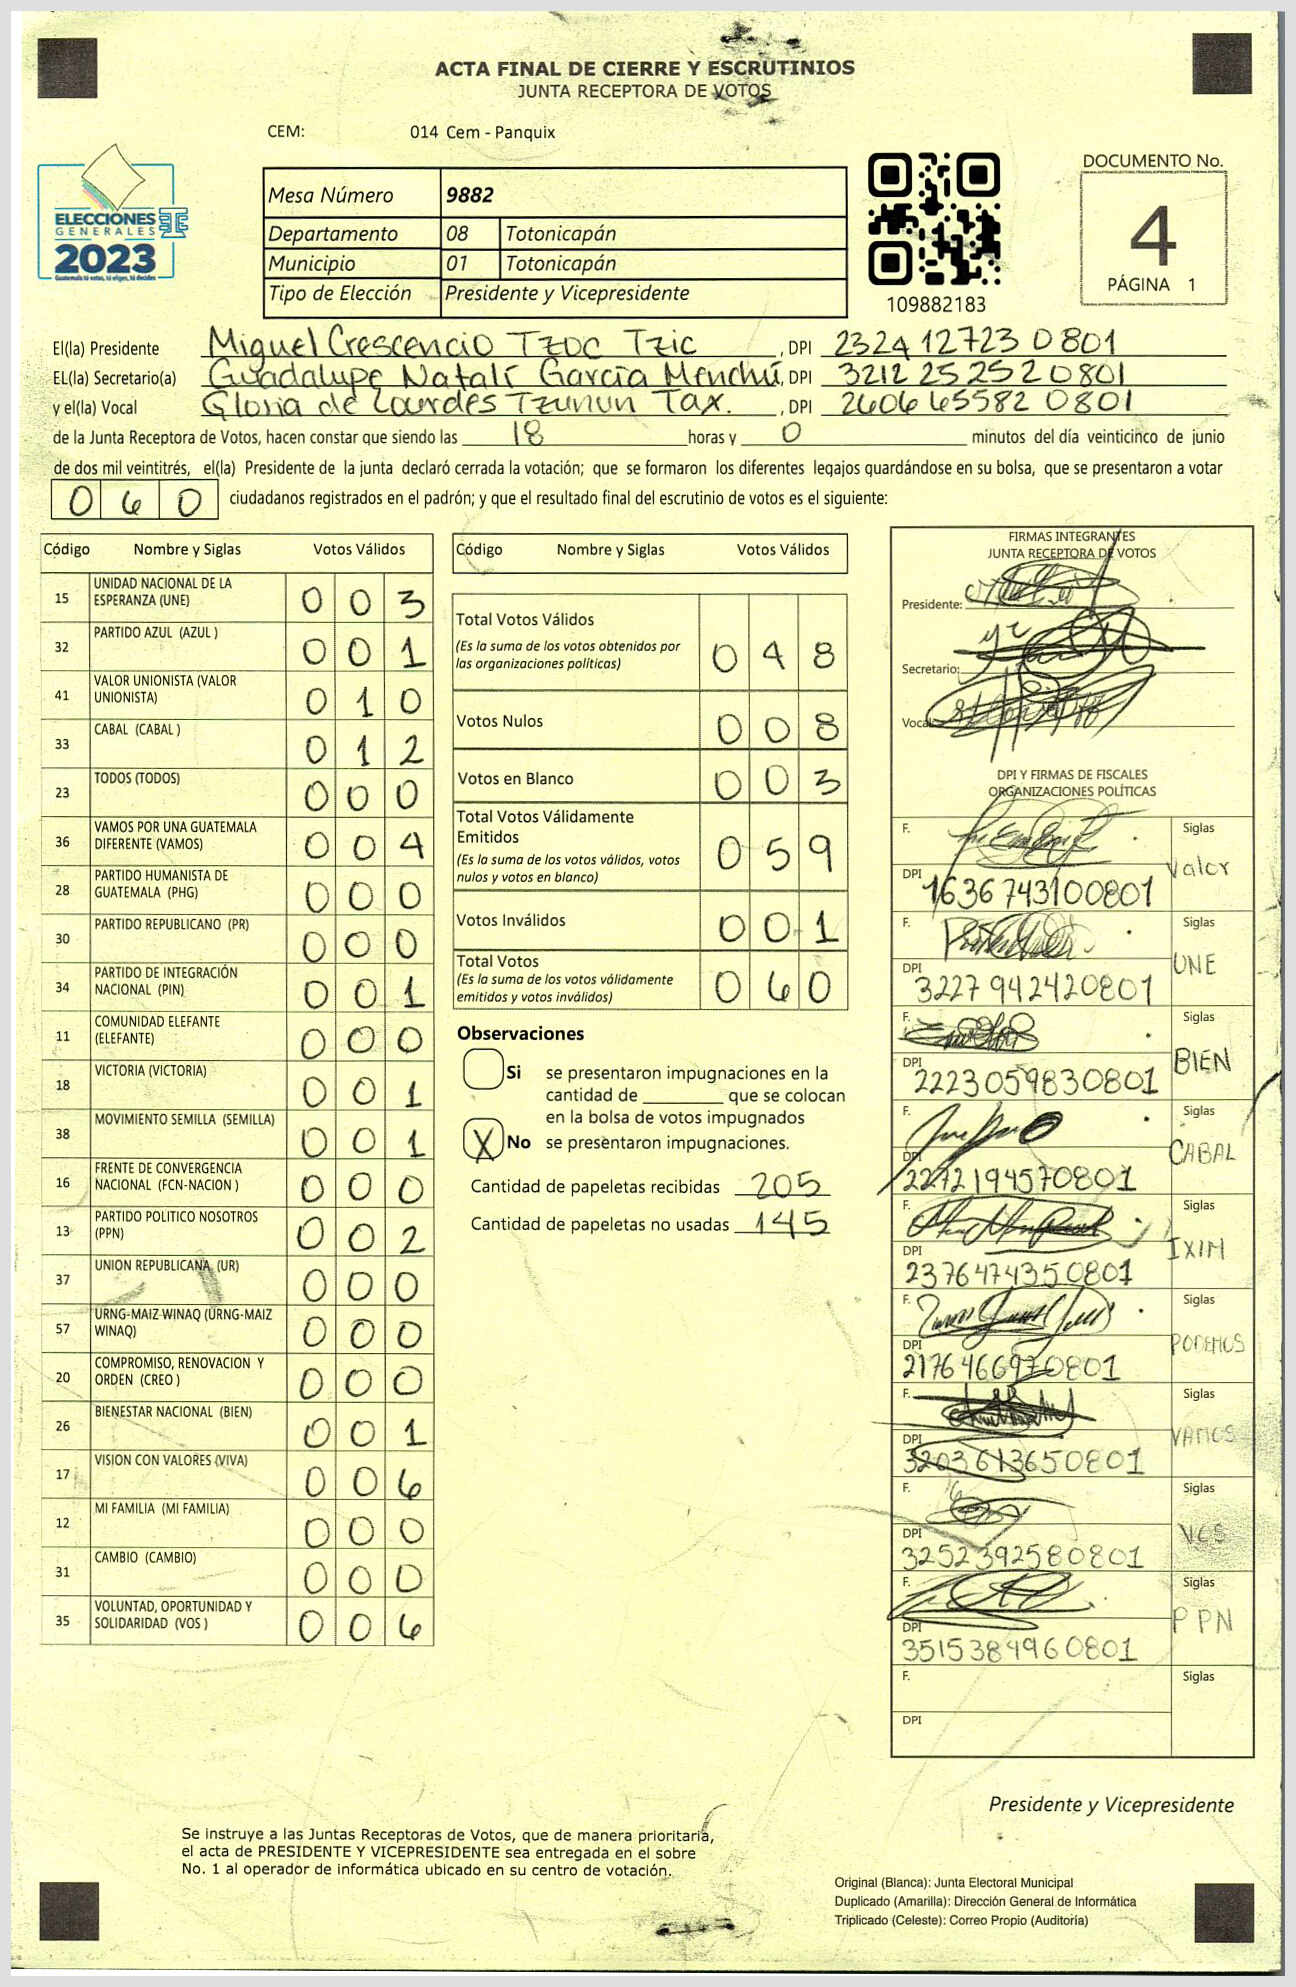 ACTA FINAL DE CIERRE Y ESCRUTINIOS
JUNTA RECEPTORA DE VOTOS
CEM: 014 Cem - Panquix
ELECCIONES
GENERALES
2023
Guatemala tú votas, tú eliges, tú decides
Mesa Número 9882
Departamento 08 Totonicapán
Municipio 01 Totonicapán
Tipo de Elección Presidente y Vicepresidente
109882183
DOCUMENTO No.
4
PÁGINA 1
El(la) Presidente Miguel Crescencio Tzoc Tzic , DPI 2324 12723 0801
EL(la) Secretario(a) Guadalupe Natalí García Menchú , DPI 3212 25252 0801
y el(la) Vocal Gloria de Lourdes Tzunun Tax. , DPI 2606 65582 0801
de la Junta Receptora de Votos, hacen constar que siendo las 18 horas y 0 minutos del día veinticinco de junio
de dos mil veintitrés, el(la) Presidente de la junta declaró cerrada la votación; que se formaron los diferentes legajos guardándose en su bolsa, que se presentaron a votar
060 ciudadanos registrados en el padrón; y que el resultado final del escrutinio de votos es el siguiente:
Código Nombre y Siglas Votos Válidos
15 UNIDAD NACIONAL DE LA ESPERANZA (UNE) 003
32 PARTIDO AZUL (AZUL ) 001
41 VALOR UNIONISTA (VALOR UNIONISTA) 010
33 CABAL (CABAL ) 012
23 TODOS (TODOS) 000
36 VAMOS POR UNA GUATEMALA DIFERENTE (VAMOS) 004
28 PARTIDO HUMANISTA DE GUATEMALA (PHG) 000
30 PARTIDO REPUBLICANO (PR) 000
34 PARTIDO DE INTEGRACIÓN NACIONAL (PIN) 001
11 COMUNIDAD ELEFANTE (ELEFANTE) 000
18 VICTORIA (VICTORIA) 001
38 MOVIMIENTO SEMILLA (SEMILLA) 001
16 FRENTE DE CONVERGENCIA NACIONAL (FCN-NACION ) 000
13 PARTIDO POLITICO NOSOTROS (PPN) 002
37 UNION REPUBLICANA (UR) 000
57 URNG-MAIZ-WINAQ (URNG-MAIZ WINAQ) 000
20 COMPROMISO, RENOVACION Y ORDEN (CREO ) 000
26 BIENESTAR NACIONAL (BIEN) 001
17 VISION CON VALORES (VIVA) 006
12 MI FAMILIA (MI FAMILIA) 000
31 CAMBIO (CAMBIO) 000
35 VOLUNTAD, OPORTUNIDAD Y SOLIDARIDAD (VOS ) 006
Código Nombre y Siglas Votos Válidos
Total Votos Válidos
(Es la suma de los votos obtenidos por las organizaciones políticas) 048
Votos Nulos 008
Votos en Blanco 003
Total Votos Válidamente Emitidos
(Es la suma de los votos válidos, votos nulos y votos en blanco) 059
Votos Inválidos 001
Total Votos
(Es la suma de los votos válidamente emitidos y votos inválidos) 060
Observaciones
Si se presentaron impugnaciones en la
cantidad de ________ que se colocan
en la bolsa de votos impugnados
X No se presentaron impugnaciones.
Cantidad de papeletas recibidas 205
Cantidad de papeletas no usadas 145
FIRMAS INTEGRANTES
JUNTA RECEPTORA DE VOTOS
Presidente:
Secretario:
Vocal:
DPI Y FIRMAS DE FISCALES
ORGANIZACIONES POLÍTICAS
F. Siglas Valor
DPI 1636 743100801
F. Siglas UNE
DPI 3227 942420801
F. Siglas BIEN
DPI 2223059830801
F. Siglas CABAL
DPI 2272194570801
F. Siglas IXIM
DPI 2376474350801
F. Siglas PODEMOS
DPI 2176466970801
F. Siglas VAMOS
DPI 3203613650801
F. Siglas VOS
DPI 3252392580801
F. Siglas PPN
DPI 3515384960801
F. Siglas
DPI
Presidente y Vicepresidente
Se instruye a las Juntas Receptoras de Votos, que de manera prioritaria,
el acta de PRESIDENTE Y VICEPRESIDENTE sea entregada en el sobre
No. 1 al operador de informática ubicado en su centro de votación.
Original (Blanca): Junta Electoral Municipal
Duplicado (Amarilla): Dirección General de Informática
Triplicado (Celeste): Correo Propio (Auditoría)